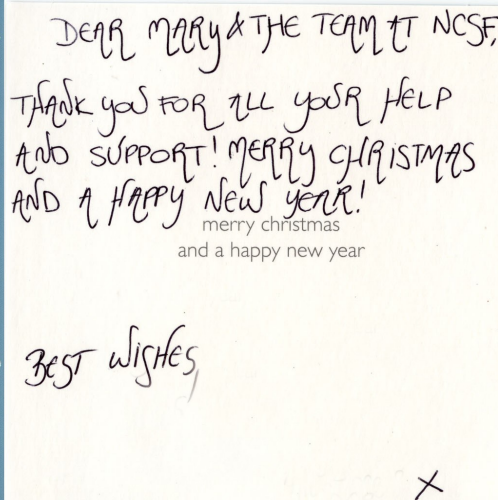 DEAR MARY & THE TEAM AT NCSF,
THANK YOU FOR ALL YOUR HELP
AND SUPPORT! MERRY CHRISTMAS
AND A HAPPY NEW YEAR!
merry christmas
and a happy new year
BEST WISHES,
X